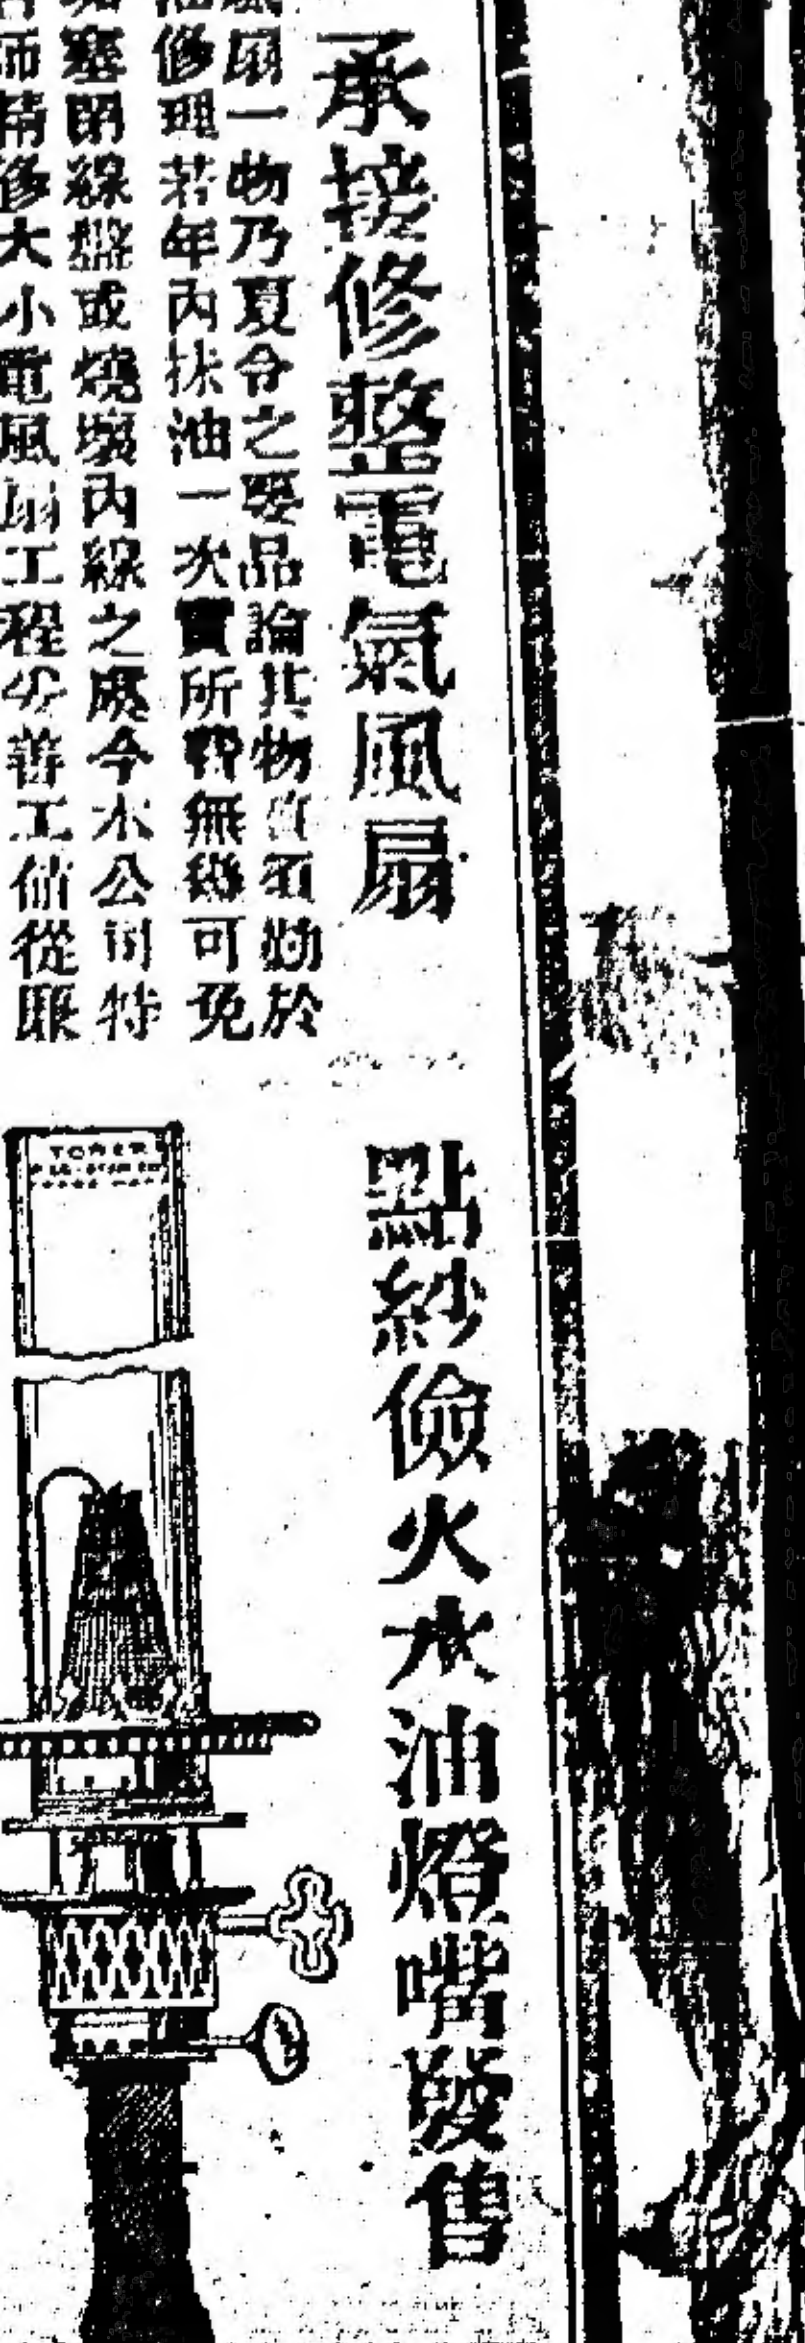 承接修整電氣風扇
點紗儉火水油燈嘴發售
風扇一物乃夏令之要品論其物質須勤於
油修理若年內抹油一次實所費無幾可免
塞閉線盤或燒壞內線之處今本公司特
師精修大小電風扇工程妙善工價從廉